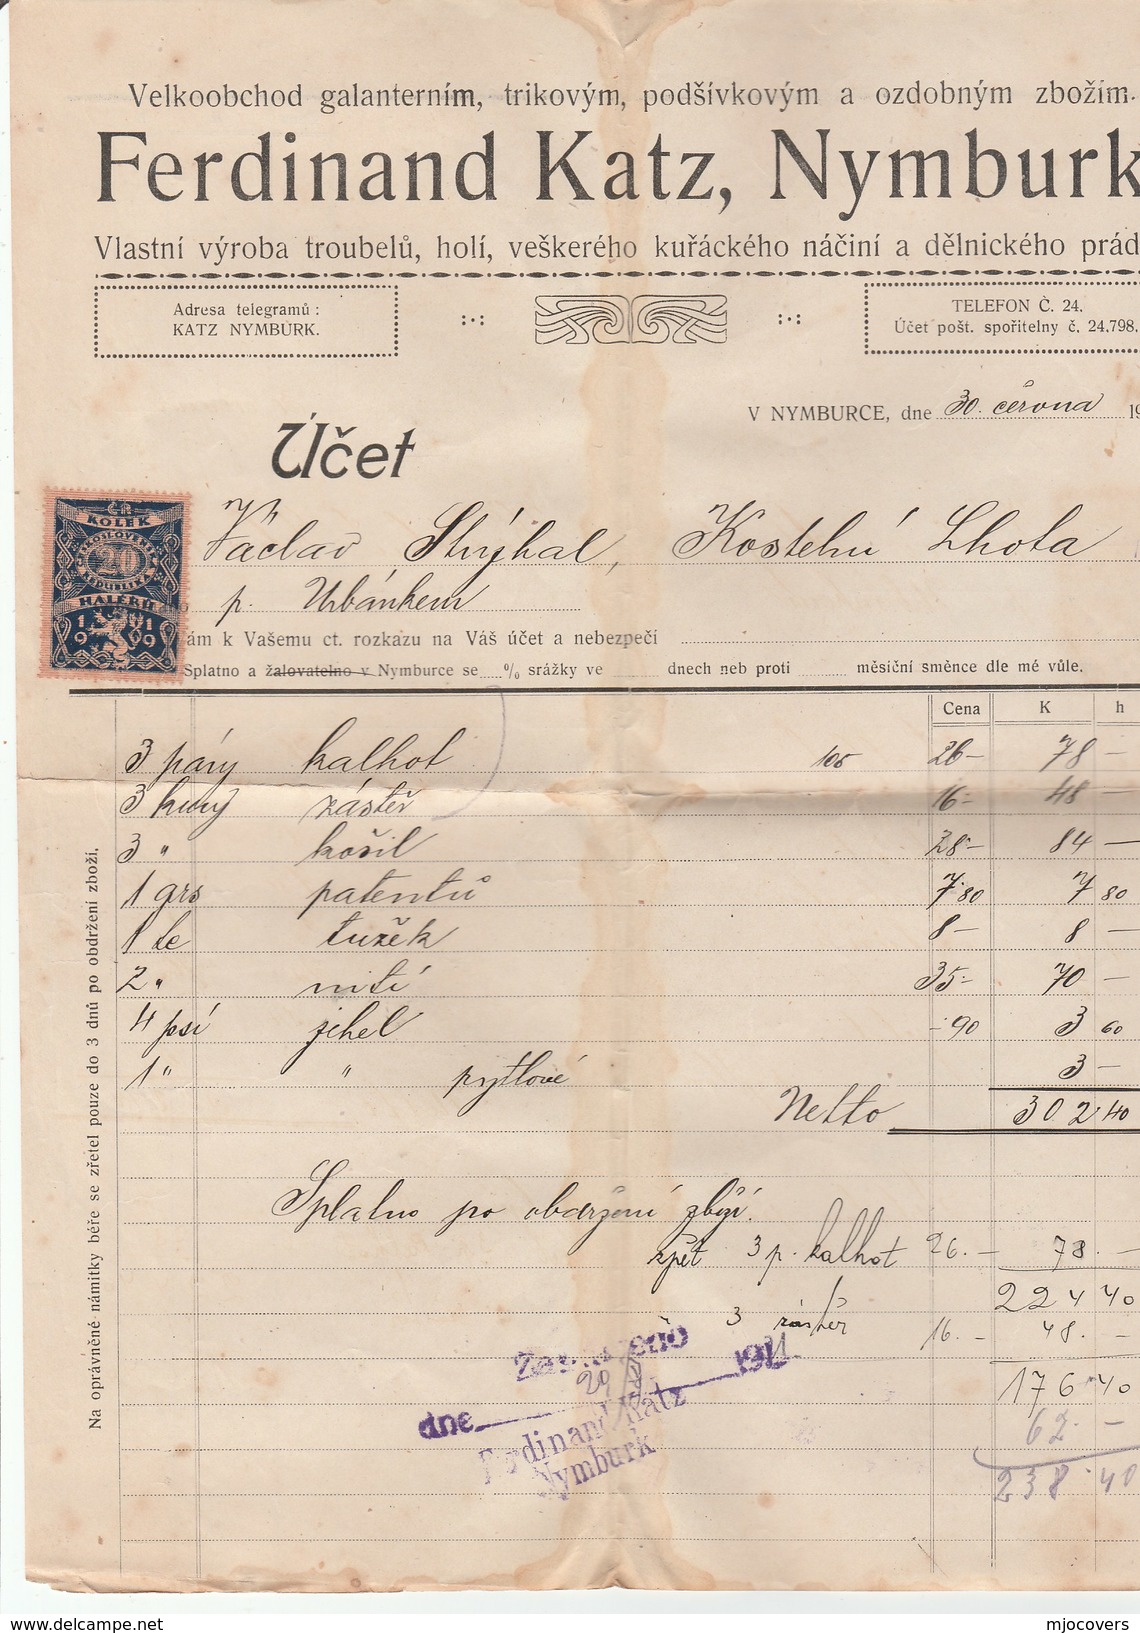 Velkoobchod galanterním, trikovým, podšívkovým a ozdobným zbožím.
Ferdinand Katz, Nymburk
Vlastní výroba troubelů, holí, veškerého kuřáckého náčiní a dělnického prád
Adresa telegramů:
KATZ NYMBURK.
TELEFON Č. 24.
Účet pošt. spořitelny č. 24.798.
V NYMBURCE, dne 30. června 19
Účet
ČR
KOLEK
ČESKOSLOVENSKÁ
20
REPUBLIKA
HALÉŘŮ
1919
Václav Strýhal, Kostelní Lhota
p. Urbánkem
ám k Vašemu ct. rozkazu na Váš účet a nebezpečí
Splatno a žalovatelno v Nymburce se % srážky ve dnech neb proti měsíční směnce dle mé vůle.
Cena K h
3 páry kalhot 105 26– 78 –
3 kusy zástěr 16– 48 –
3 " košil 28– 84 –
1 grs patentů 7·80 7 80
1 tc tužek 8– 8 –
2 " nití 35– 70 –
4 psí jehel –90 3 60
1 " " pytlové 3 –
Netto 302·40
Splatno po obdržení zboží.
zpět 3 p. kalhot 26.– 78.–
224 40
3 zástěr 16.– 48.–
176·40
62·–
238·40
Zaplaceno
dne 29/ 1921
Ferdinand Katz
Nymburk
Na oprávněné námitky béře se zřetel pouze do 3 dnů po obdržení zboží.
mjocovers
www.delcampe.net